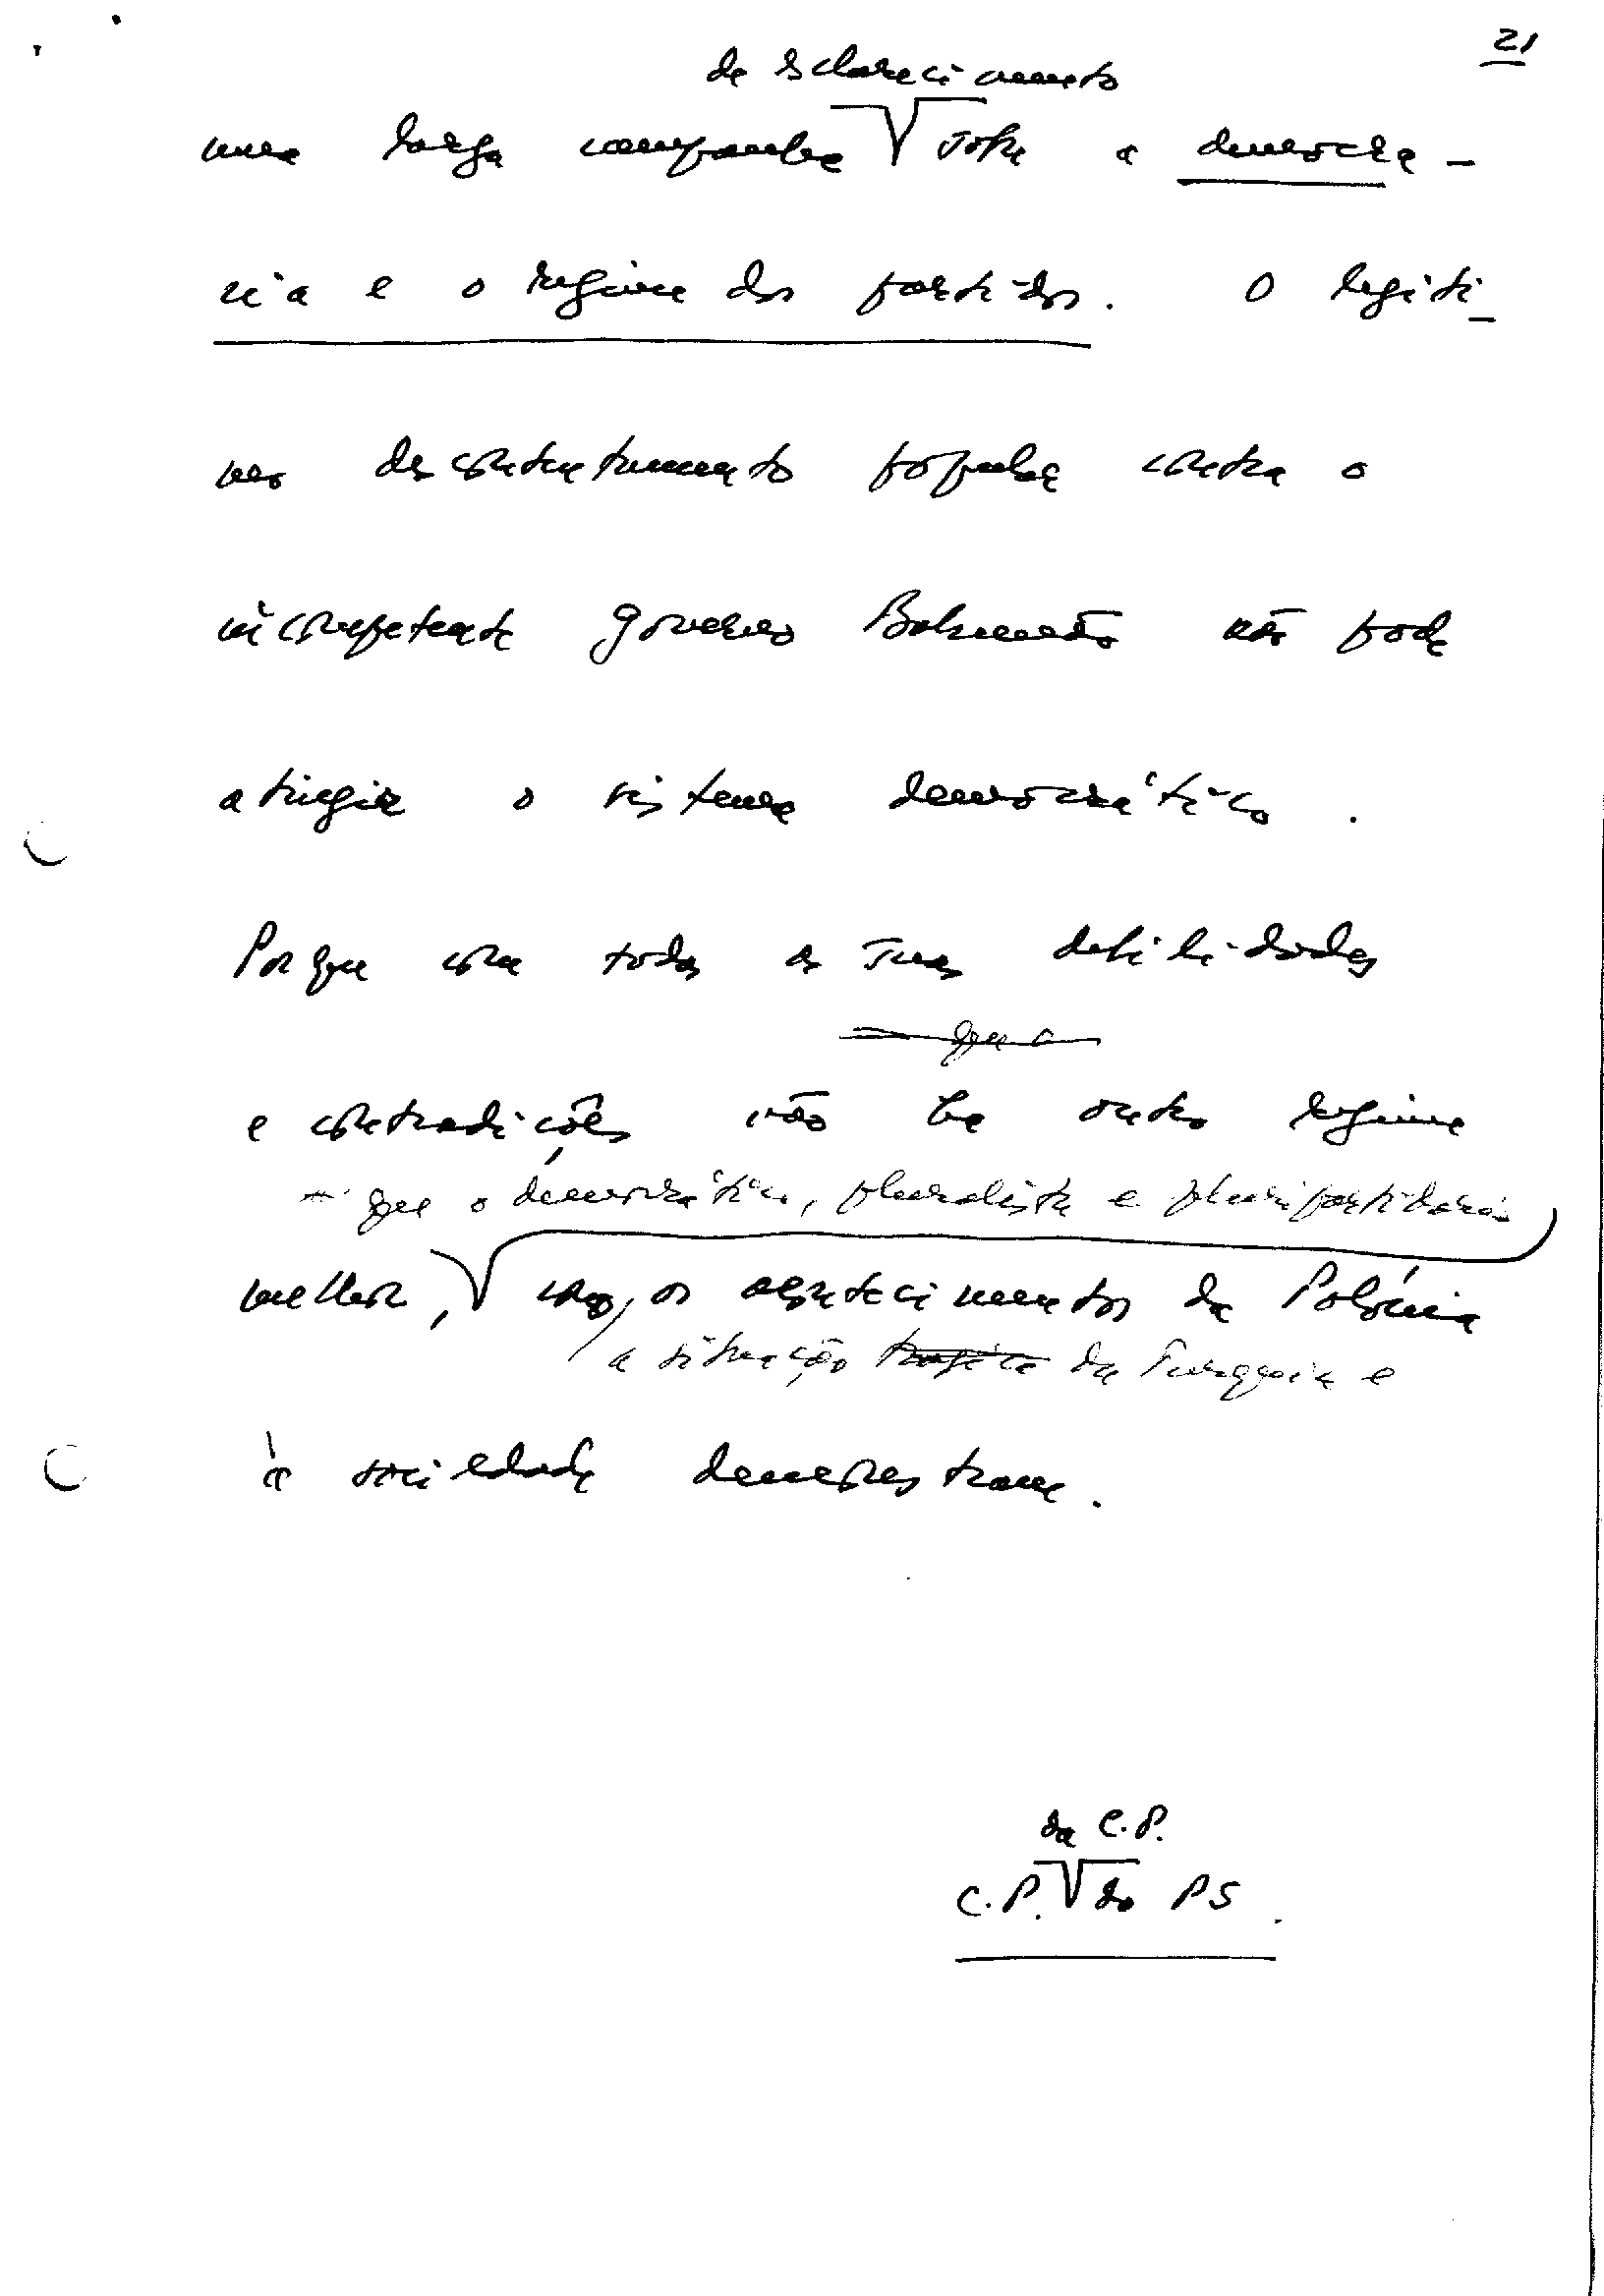 21
de esclarecimento
uma larga campanha sobre a democra-
cia e o regime dos partidos. O legíti-
mo descontentamento popular contra o
incompetente governo Balsemão não pode
atingir o sistema democrático.
Porque com todas as suas debilidades
que o
e contradições não há outro regime
que o democrático, pluralista e pluripartidário
melhor, como os acontecimentos da Polónia
a situação trágica da Turquia e
à sociedade demonstram.
da C.P.
C.P. do PS.